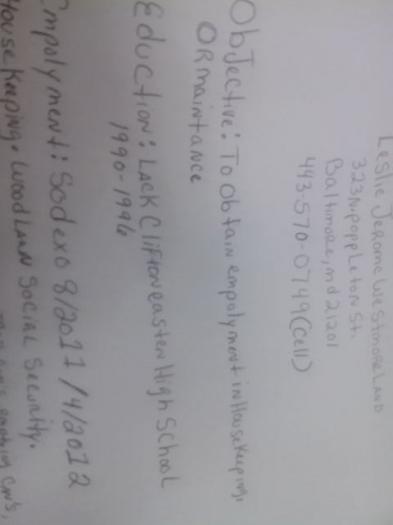 Leslie Jerome Westmoreland
323 N. poppleton St.
Baltimore, md 21201
443-570-0749 (cell)
Objective: To Obtain empolyment in Housekeeping,
OR maintance
Eduction: Lack Clifton eastern High School
1990-1996
Empolyment: Sodexo 8/2011 / 4/2012
Housekeeping. Woodlawn Social Security.